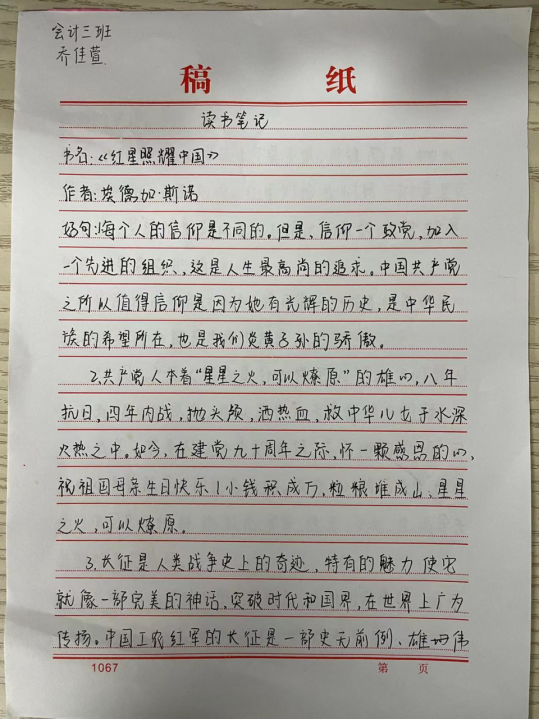 会计三班
乔佳萱
稿 纸
读书笔记
书名:《红星照耀中国》
作者:埃德加·斯诺
好句:1每个人的信仰是不同的。但是、信仰一个政党,加入
一个先进的组织、这是人生最高尚的追求。中国共产党
之所以值得信仰是因为她有光辉的历史,是中华民
族的希望所在,也是我们炎黄子孙的骄傲。
2.共产党人本着“星星之火,可以燎原”的雄心,八年
抗日,四年内战,抛头颅,洒热血,救中华儿女于水深
火热之中。如今,在建党九十周年之际,怀一颗感恩的心,
祝祖国母亲生日快乐!小钱积成万,粒粮堆成山、星星
之火,可以燎原。
3.长征是人类战争史上的奇迹,特有的魅力使它
就像一部完美的神话,突破时代和国界,在世界上广为
传扬。中国工农红军的长征是一部史无前例、雄伟
1067 第 页